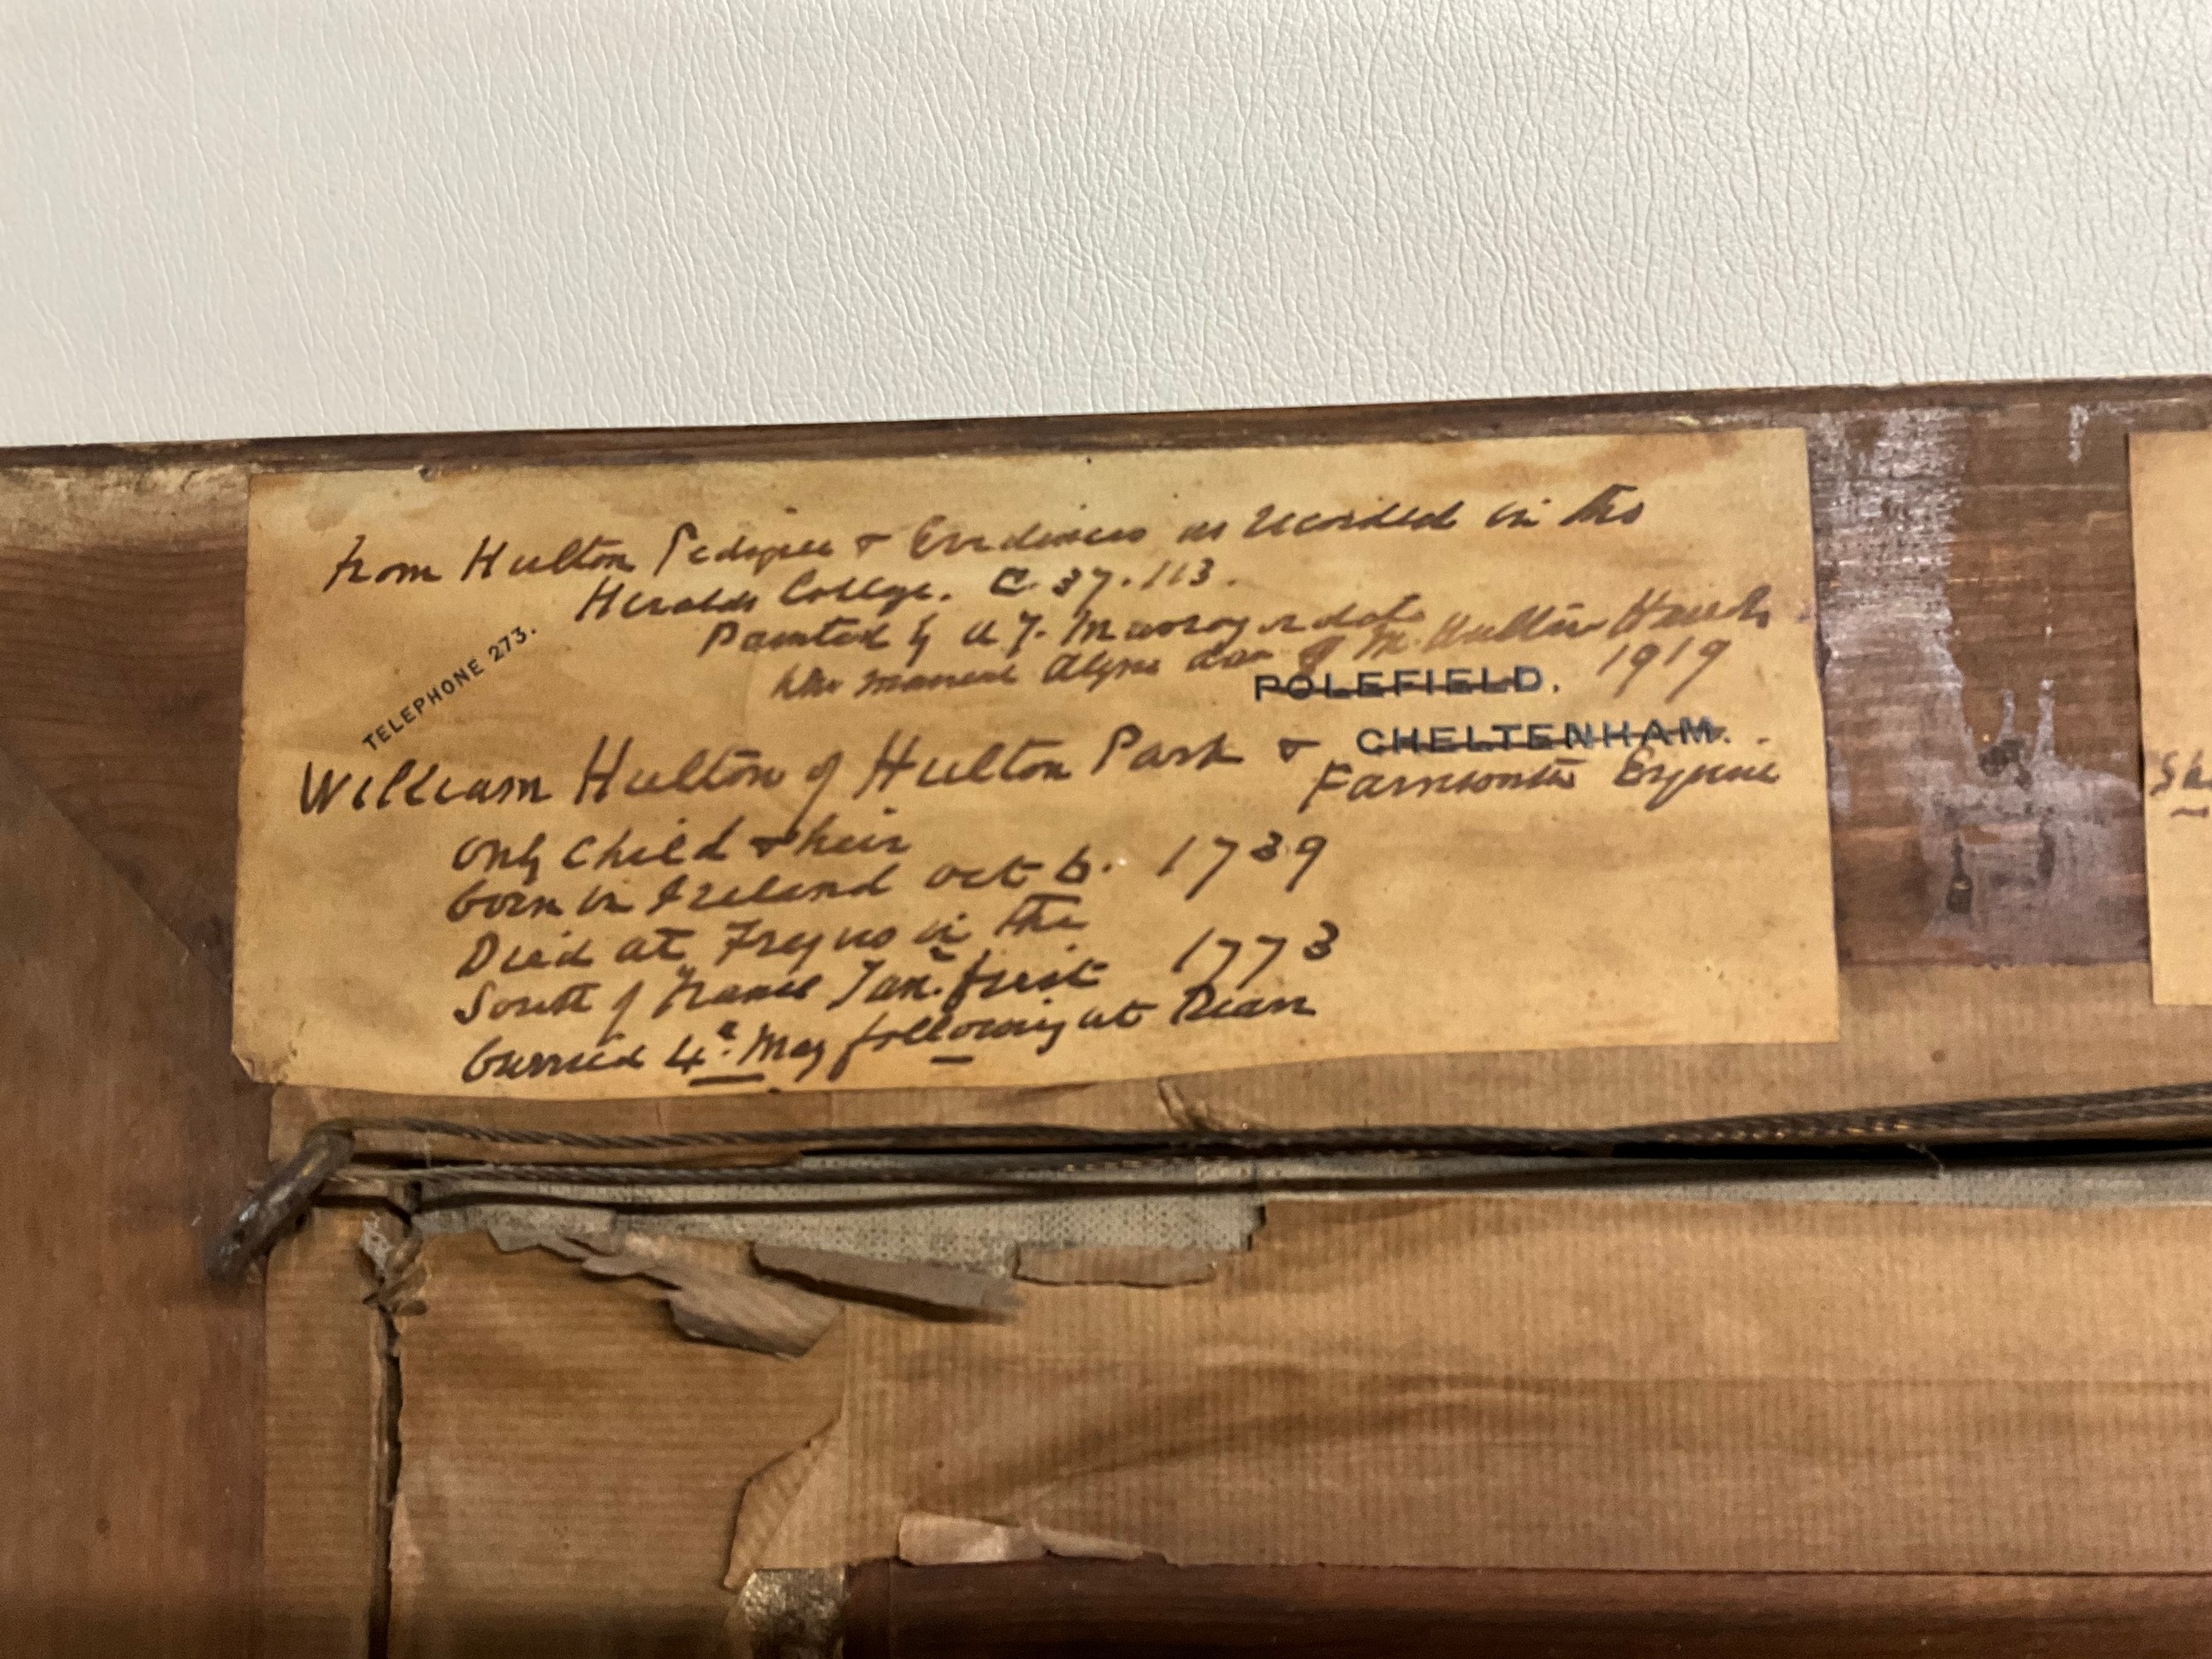 from Hulton Pedigree & Evidences as recorded in the
Heralds College. C. 37. 113.
Painted by A J. Murray
who married daur of M. Hulton
TELEPHONE 273.
POLEFIELD. 1919
CHELTENHAM.
William Hulton of Hulton Park &
Farnworth Esquire
only child & heir
born in Ireland oct 6. 1739
Died at Frejus in the
South of France Jan. first 1773
burried 4th May following at Dean